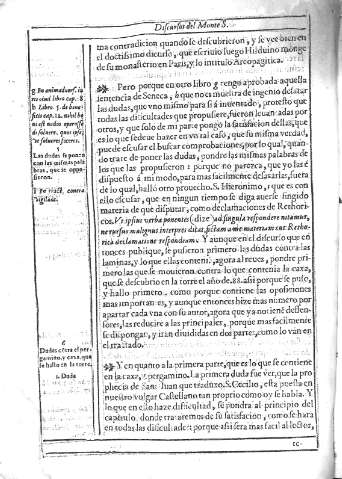 Discursos del Monte S.
ma contradicion quando se descubrieron, y se vee bien en
el doctissimo dicurso, que escriuio fuego Hilduino monge
de su monasterio en Paris, y lo intitulo Areopagitica.
Pero porque en otro libro tengo aprobada aquella
sentencia de Seneca, que no es muestra de ingenio desatar
las dudas, que vno mismo para si à inuentado, protesto que
todas las dificultades que propusiere, fueron leuantadas por
otros, y que solo de mi parte pongo la satisfacion dellas, que
es lo que se deue hazer en vn tal caso, que su misma verdad,
puede escusar el buscar comprobaciones, por lo qual, quan-
do trate de poner las dudas, pondre las mismas palabras de
los que las propusieron: porque no parezca, que yo las è
dispuesto à mi modo, para mas facilmente desatarlas, fuera
de lo qual, hallo otro prouecho. S. Hieronimo, que es con
ello escusar, que en ningun tiempo se diga auerse fingido
materia de que disputar, como declamaciones de Rethori-
cos. Vt ipsius verba ponentes (dize) ad singula respondere nitamur,
ne rursus malignus interpres dicat, fictam a me materiam cui Rheto-
rica declamatione respondeam. Y aunque en el discurso que en
tonces publique, se pusieron primero las dudas contra las
laminas, y lo que ellas contenian, agora al reues, pondre pri-
mero las que se mouieron contra lo que contenia la caxa,
que se descubrio en la torre el año de.88. assi porque se puso,
y hallo primero, como porque contiene las oposiciones
mas importantes, y aunque entonces hize mas numero por
apartar cada vna con su autor, agora que ya no tiene defen-
sores, las reducire a las principales, porque mas facilmente
se dispongan, y iran diuididas en dos partes, como lo van en
el tratado.
Y en quanto a la primera parte, que es lo que se contiene
en la caxa, y pergamino. La primera duda fue ver, que la pro
phecia de San Juan que traduzo S. Cecilio, esta puesta en
nuestro vulgar Castellano tan proprio como oy se habla. Y
lo que en ello haze dificultad, se pondra al principio del
capitulo, donde trataremos de su satisfacion, como se hara
en todas las dificultades: porque assi sera mas facil al lector,
cc-
Las dudas se pone
can las mismas pala
bras, que se oppu-
sieron.
6
Dudas contra el per
gamino, y caxa, que
se hallo en la torre.
1. Duda